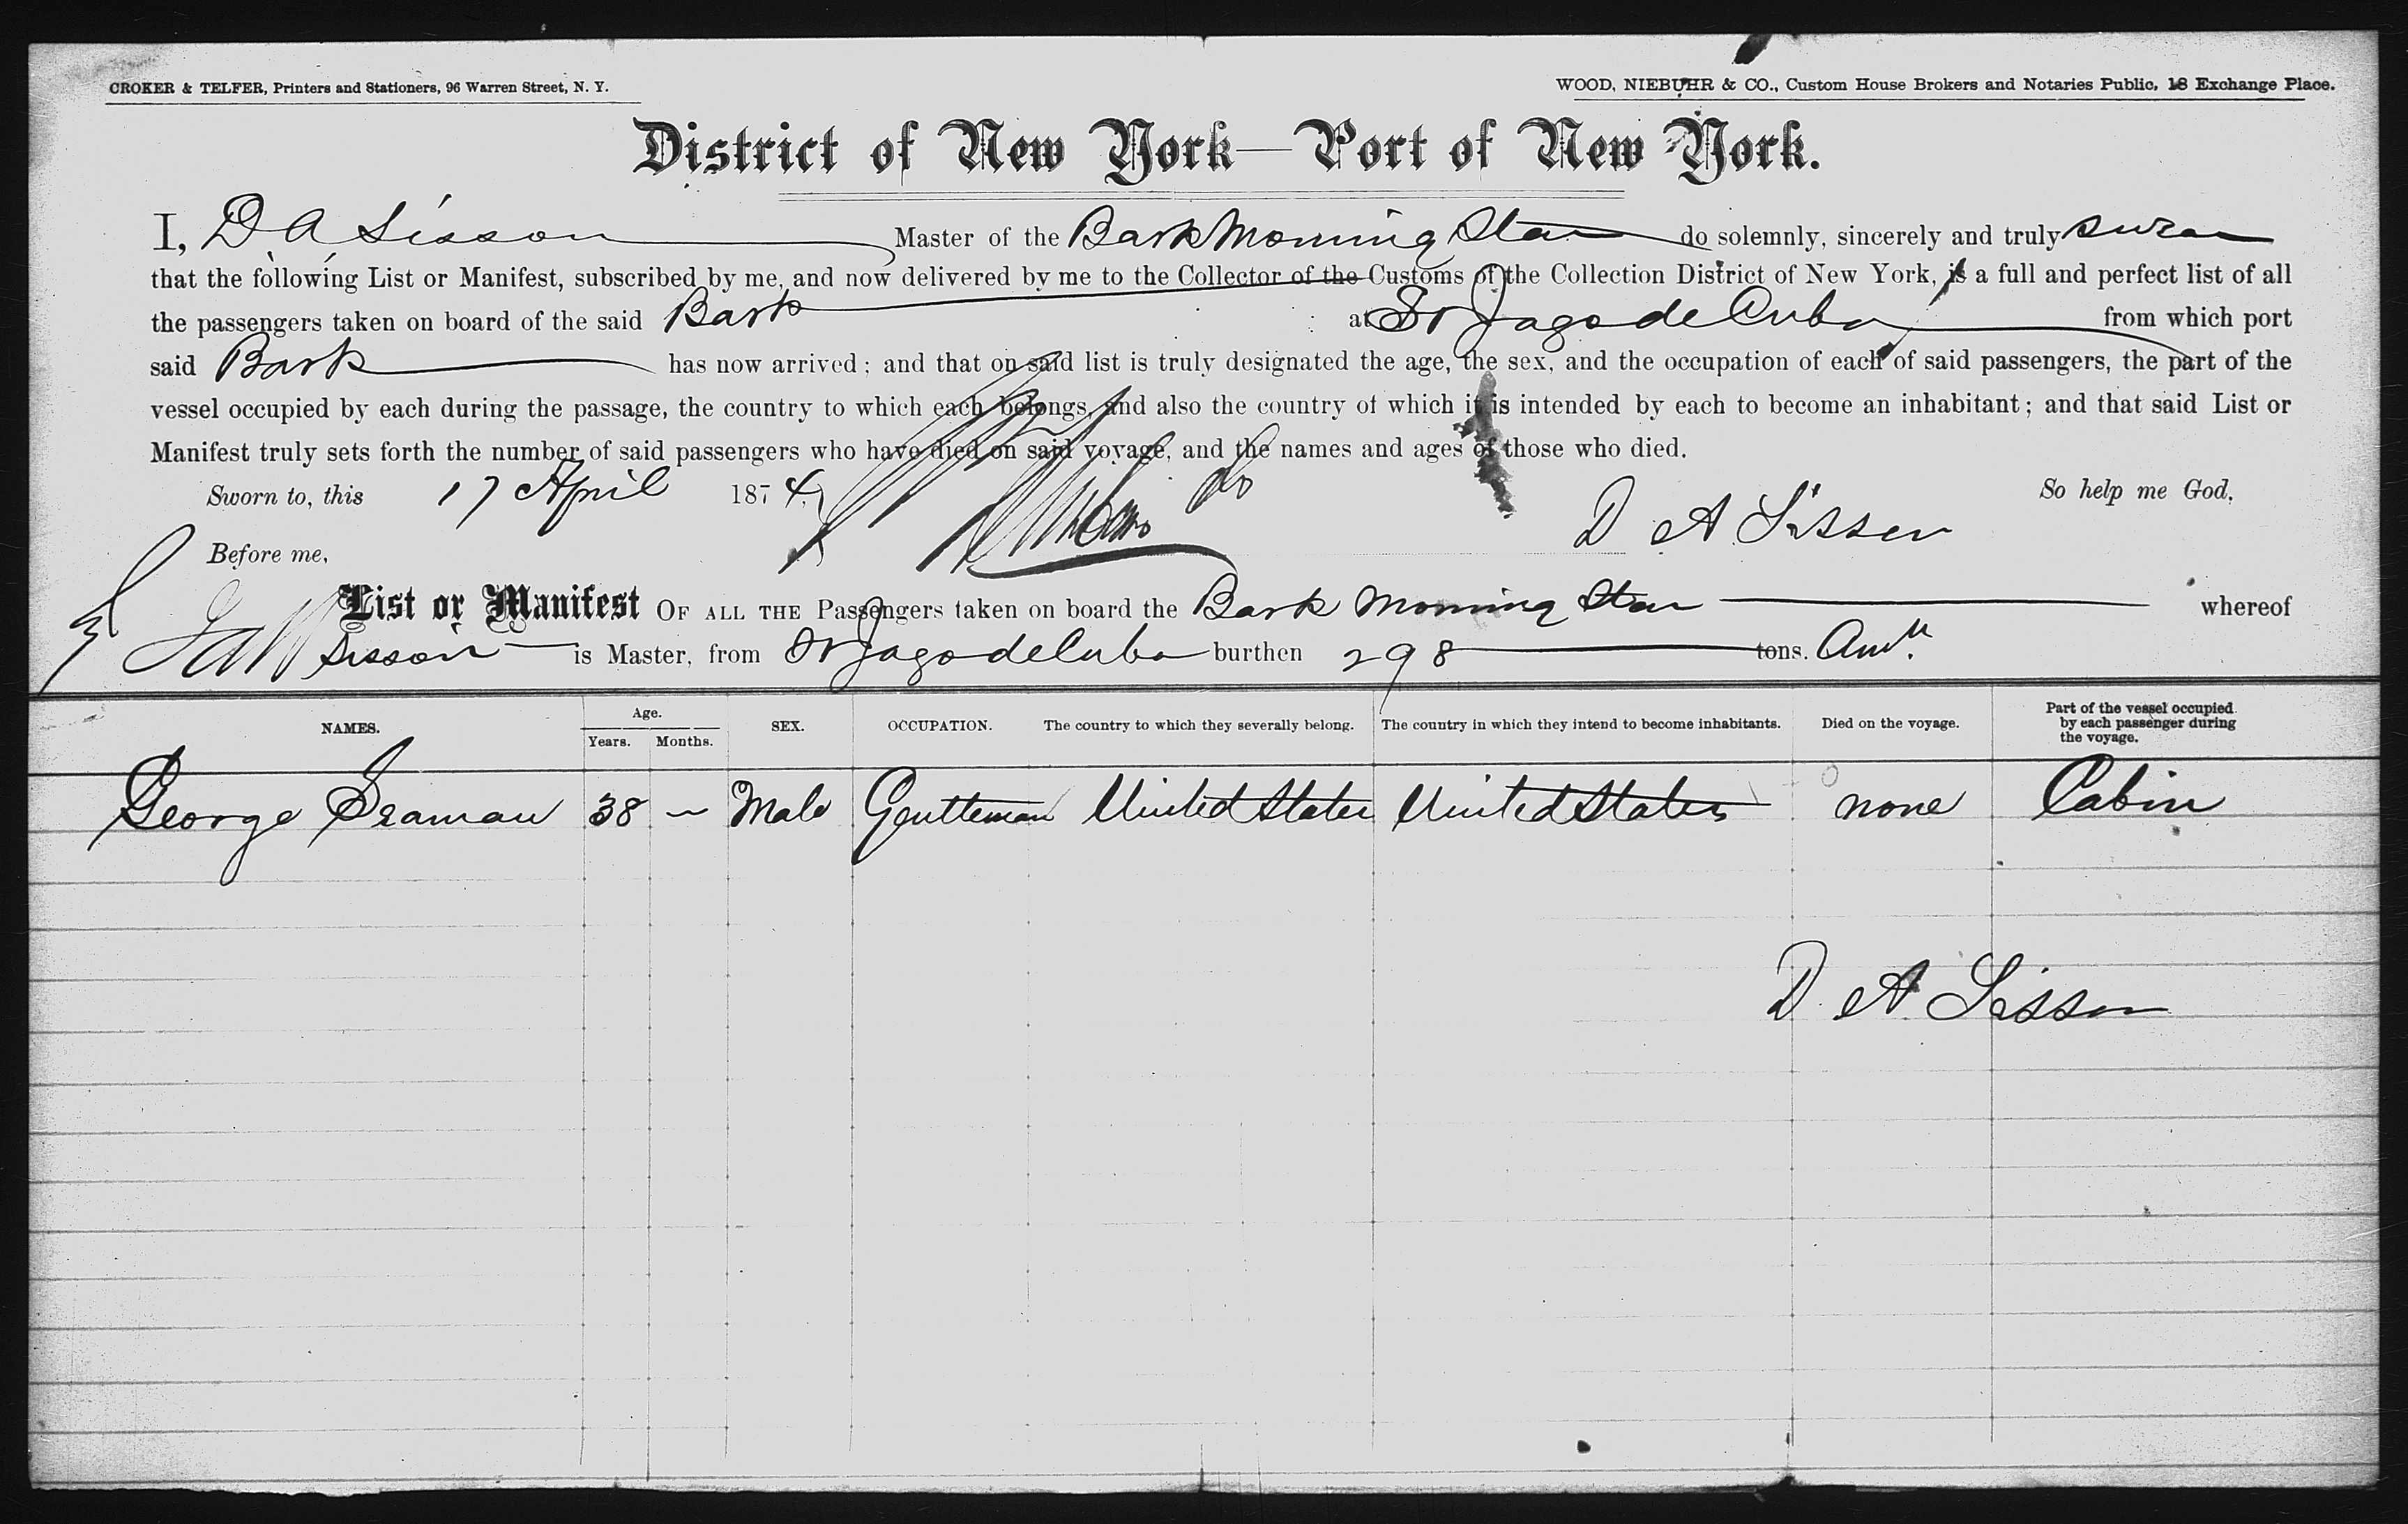 CROKER & TELFER, Printers and Stationers, 96 Warren Street, N. Y.
WOOD, NIEBUHR & CO., Custom House Brokers and Notaries Public, 18 Exchange Place.
District of New York—Port of New York.
I, D A Sisson Master of the Bark Morning Star do solemnly, sincerely and truly swear
that the following List or Manifest, subscribed by me, and now delivered by me to the Collector of the Customs of the Collection District of New York, is a full and perfect list of all
the passengers taken on board of the said Bark at St Jago de Cuba from which port
said Bark has now arrived; and that on said list is truly designated the age, the sex, and the occupation of each of said passengers, the part of the
vessel occupied by each during the passage, the country to which each belongs, and also the country of which it is intended by each to become an inhabitant; and that said List or
Manifest truly sets forth the number of said passengers who have died on said voyage, and the names and ages of those who died.
Sworn to, this 17 April 1874 So help me God,
D A Sisson
Before me,
List or Manifest OF ALL THE Passengers taken on board the Bark Morning Star whereof
Sisson is Master, from St Jago de Cuba burthen 298 tons.
NAMES. Age. Years. Months. SEX. OCCUPATION. The country to which they severally belong. The country in which they intend to become inhabitants. Died on the voyage. Part of the vessel occupied by each passenger during the voyage.
George Seaman 38 – Male Gentleman United States United States none Cabin
D. A. Sisson